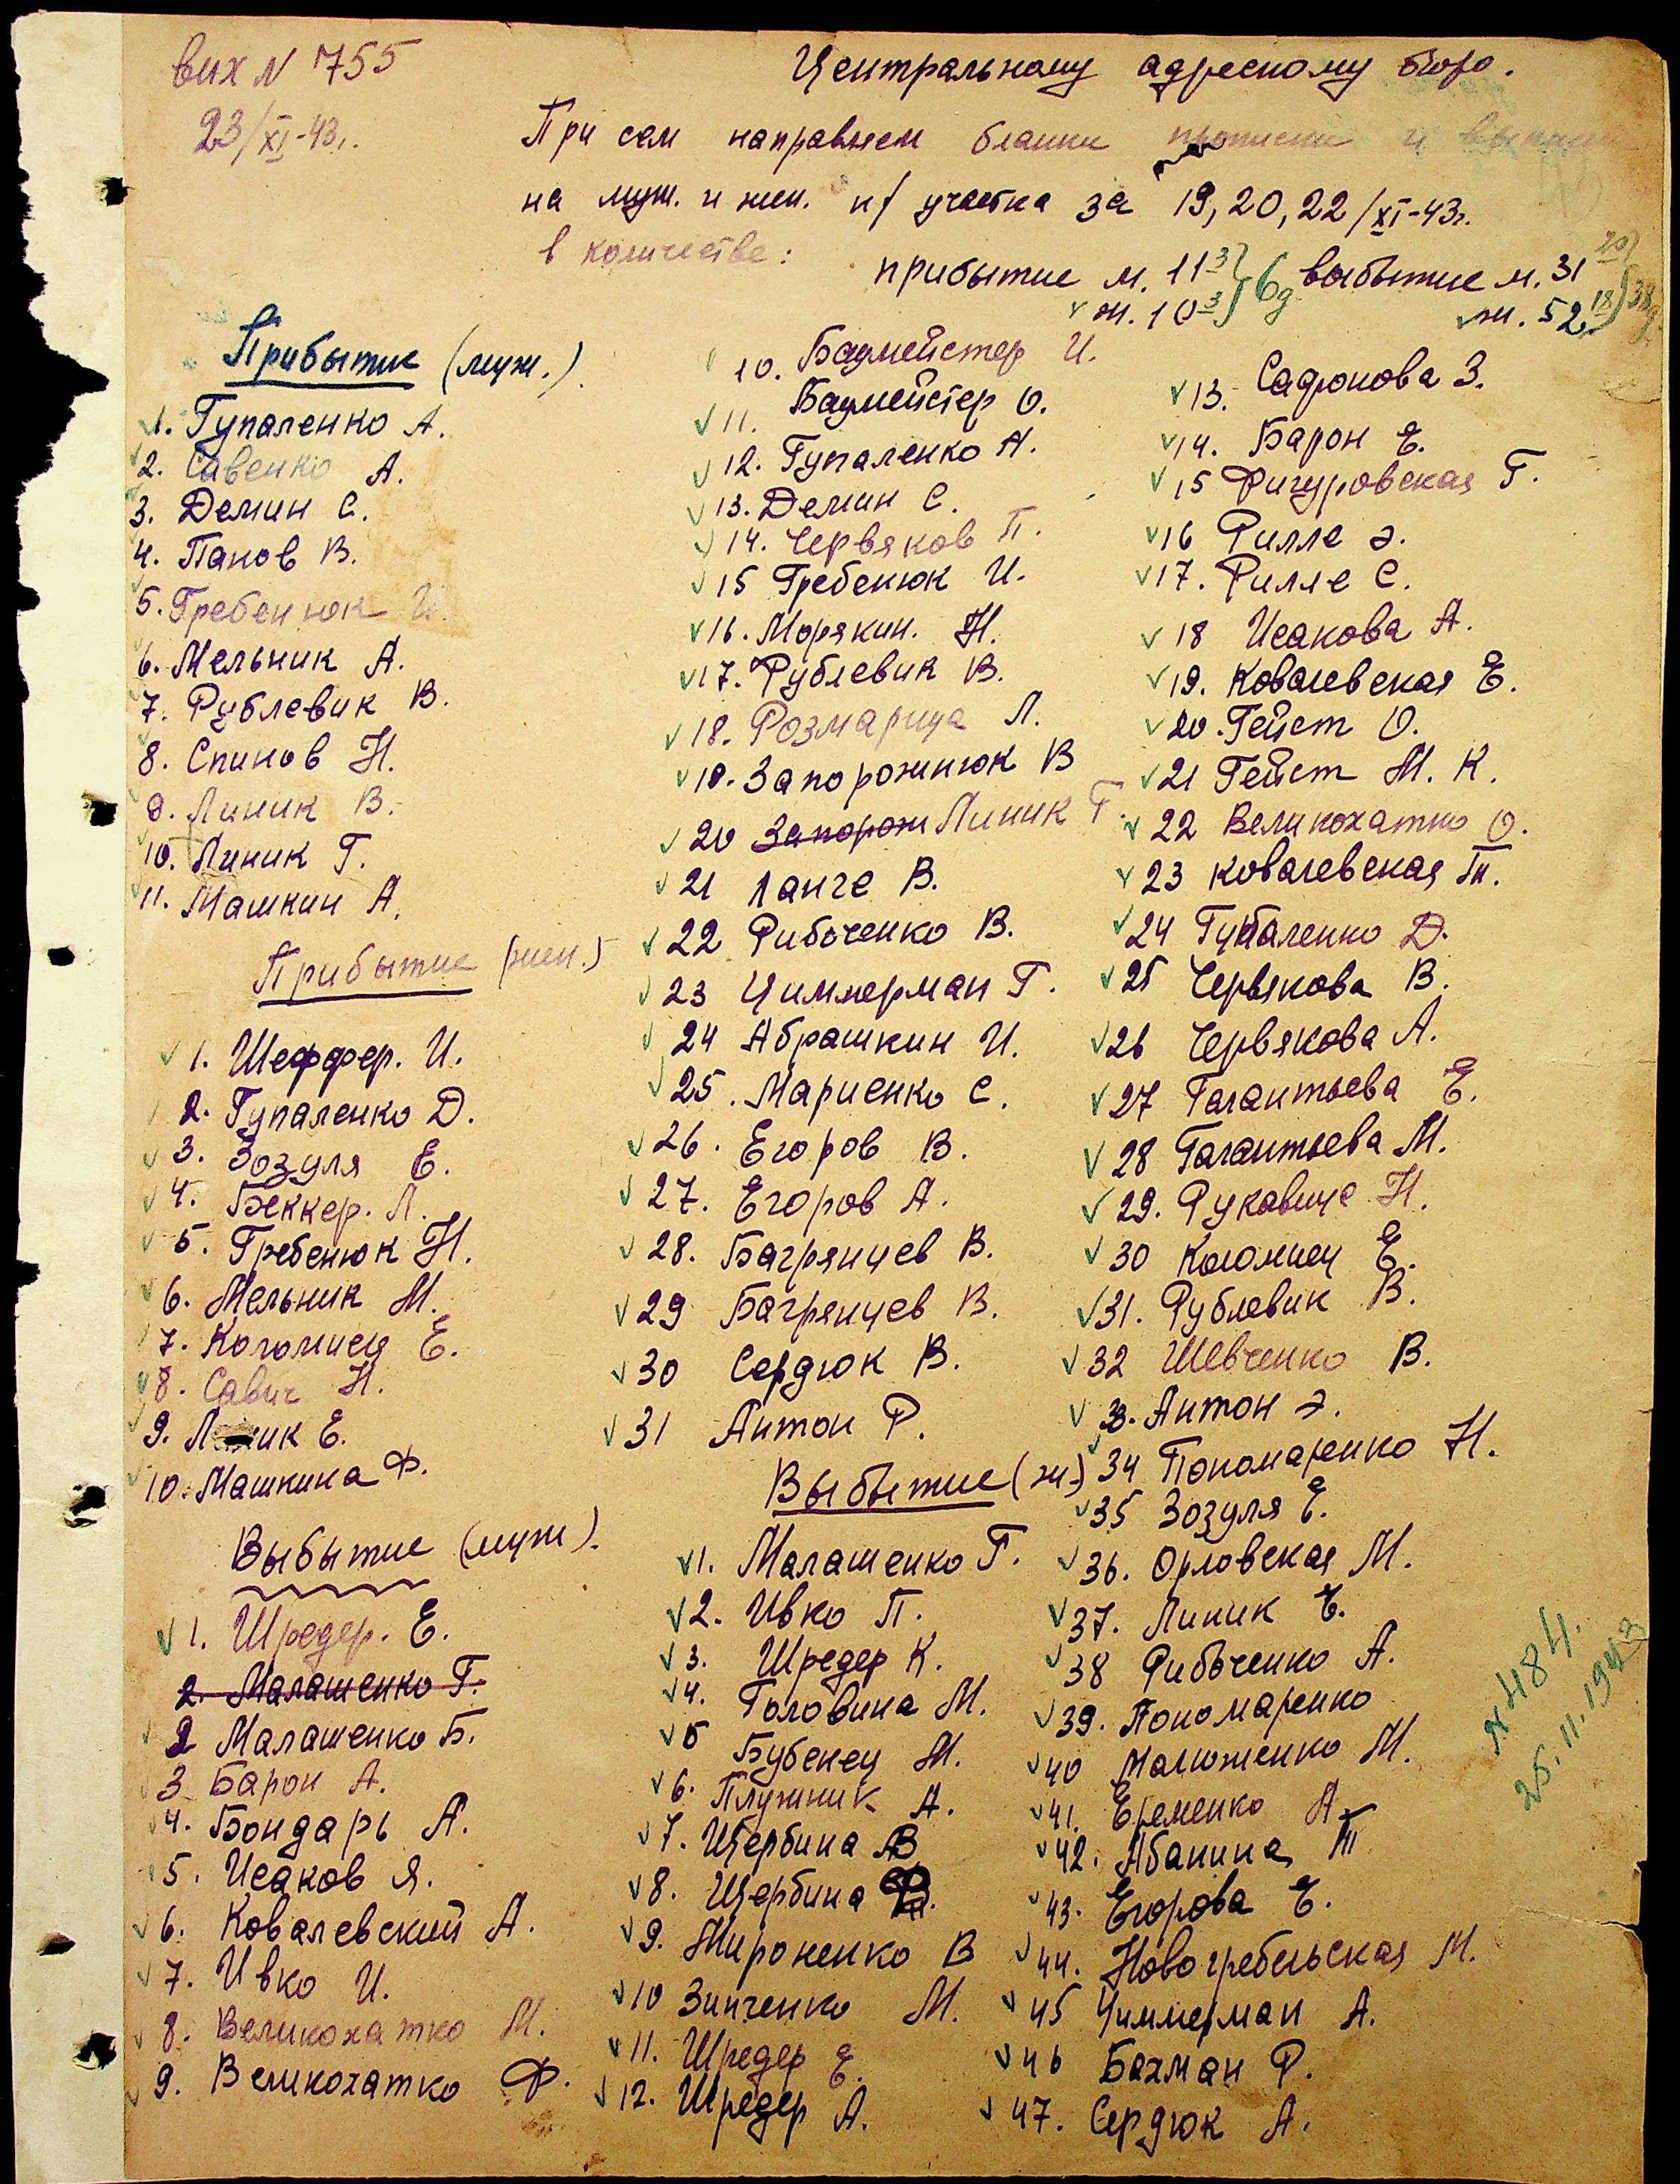 вих N 755
23/XI-43г.
Центральному адресному бюро.
При сем направляем бланки прописки и выписки
на муж. и жен. п/ участка за 19, 20, 22/XI-43г.
в количестве:
прибытие м. 11 3 } 6д выбытие м. 31 20
ж. 10 3 ж. 52 18 38
Прибытие (муж.).
1. Гупаленко А.
2. Савенко А.
3. Демин С.
4. Панов В.
5. Гребенюк И.
6. Мельник А.
7. Рублевик В.
8. Спинов Н.
9. Линик В.
10. Линик Г.
11. Машкин А.
Прибытие (жен.)
1. Шеффер. И.
2. Гупаленко Д.
3. Зозуля Е.
4. Беккер. Л.
5. Гребенюк Н.
6. Мельник М.
7. Коломиец Е.
8. Савич Н.
9. Линик Е.
10. Машкина Ф.
Выбытие (муж).
1. Шредер. Е.
2. Малашенко Г.
2 Малашенко Б.
3 Барон А.
4. Бондарь А.
5. Исаков Я.
6. Ковалевский А.
7. Ивко И.
8. Великохатко М.
9. Великохатко Ф.
10. Баумейстер И.
11. Баумейстер О.
12. Гупаленко А.
13. Демин С.
14. Червяков П.
15 Гребенюк И.
16. Морякин. Н.
17. Рублевик В.
18. Розмарица Л.
19. Запорожнюк В
20 Запорож Линик Г.
21 Ланге В.
22 Рибоченко В.
23 Циммерман Г.
24 Абрашкин И.
25. Мариенко С.
26. Егоров В.
27. Егоров А.
28. Багрянцев В.
29 Багрянцев В.
30 Сердюк В.
31 Антон Р.
Выбытие (ж.)
1. Малашенко Г.
2. Ивко П.
3. Шредер К.
4. Головина М.
5 Бубенец М.
6. Плужник А.
7. Щербина В
8. Щербина
9. Мироненко В
10 Зинченко М.
11. Шредер Е.
12. Шредер А.
13. Садронова З.
14. Барон Е.
15 Фигуровская Г.
16 Рилле Э.
17. Рилле С.
18 Исакова А.
19. Ковалевская Е.
20. Гейст О.
21 Гейст М. К.
22 Великохатко О.
23 Ковалевская Т.
24 Гупаленко Д.
25 Червякова В.
26 Червякова А.
27 Галантьева Е.
28 Галантьева М.
29. Рукавице Н.
30 Коломиец Е.
31. Рублевик В.
32 Шевченко В.
33. Антон Э.
34 Пономаренко Н.
35 Зозуля Е.
36. Орловская М.
37. Линик Е.
38 Рибоченко А.
39. Пономаренко
40 Малюженко М.
41. Еременко А.
42. Абанина Т
43. Егорова Е.
44. Новогребельская М.
45 Циммерман А.
46 Бахман Р.
47. Сердюк А.
N 484.
25.11.1943